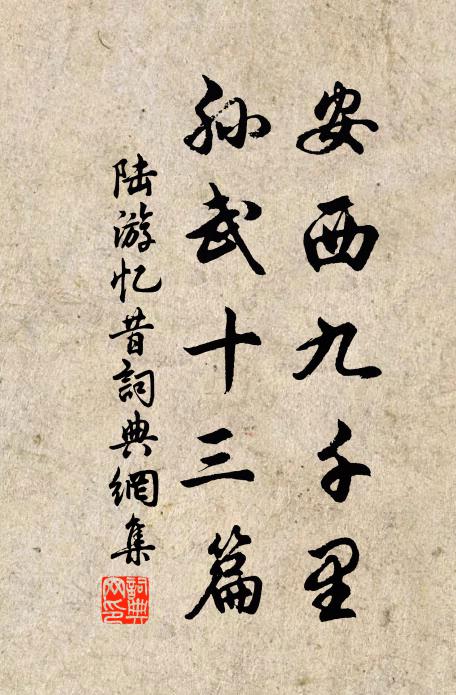 安西九千里
孙武十三篇
陆游忆昔詞典網集
詞典
网印